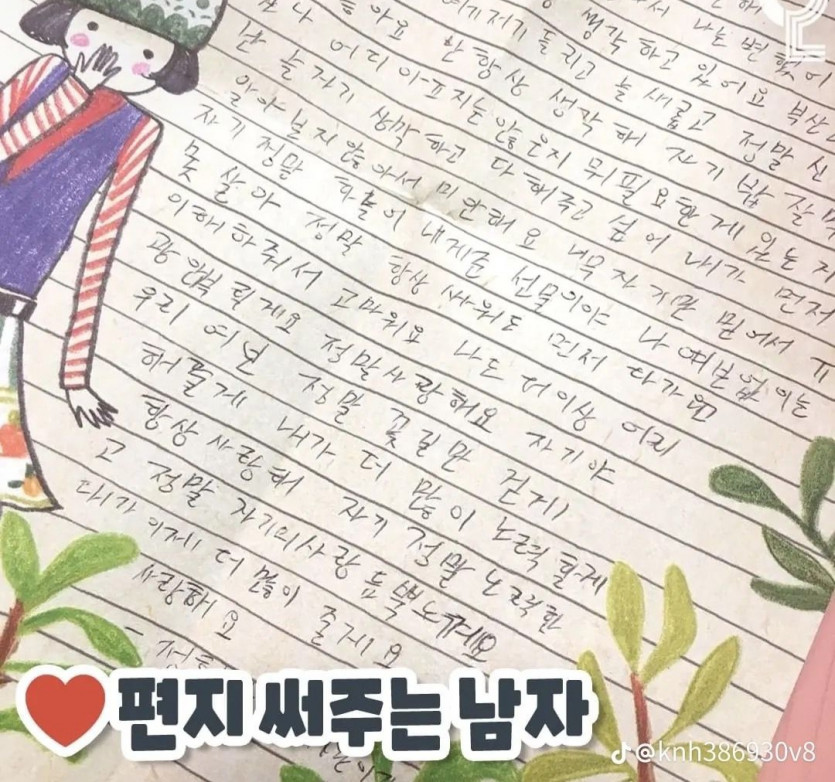 서 나는 변했어
생각하고 있어요
여기저기 들리고 늘 새롭고 정말 신
좋아요 난 항상 생각해 자기 밥 잘
어디 아프지는 않은지 뭐필요한게 있는지
난 늘 자기 생각하고 다 해주고 싶어 내가 먼저
알아보지 않아서 미안해요 너무 자기만 믿어서 ㅠ
자기 정말 하늘이 내게준 선물이야 나 여보없이는
못 살아 정말 항상 싸워도 먼저 다가와
이해하줘서 고마워요 나도 더이상 어리
광 안부릴게요 정말 사랑해요 자기야
우리 여보 정말 꽃길만 걷게
해줄게 내가 더 많이 노력할게
항상 사랑해 자기 정말 노력한
고 정말 자기의사랑 듬뿍느껴요
내가 이제 더 많이 줄게요
사랑해요
편지 써주는 남자
@knh386930v8